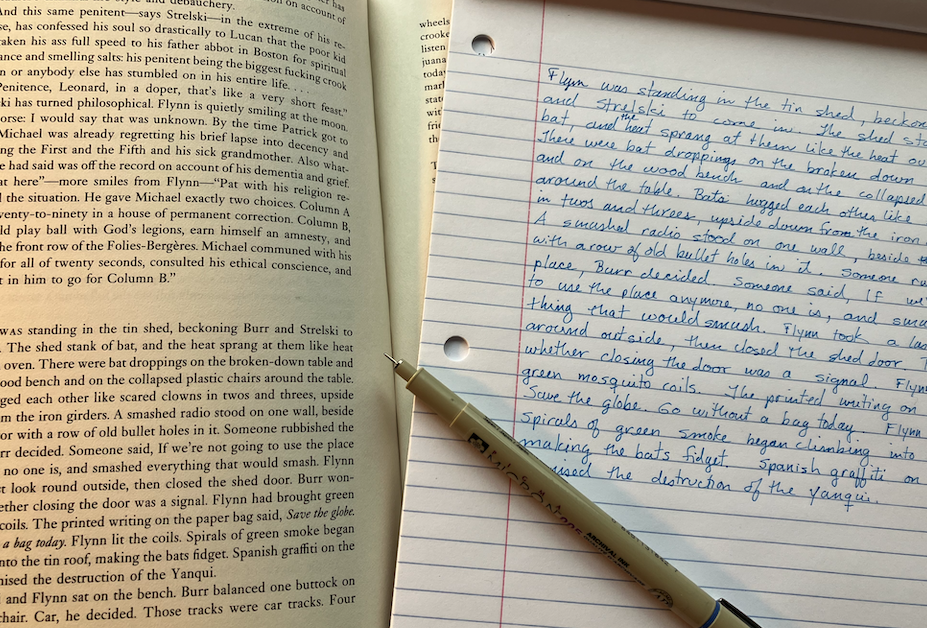 style and debauchery.
on account of
And this same penitent—says Strelski—in the extreme of his re-
se, has confessed his soul so drastically to Lucan that the poor kid
taken his ass full speed to his father abbot in Boston for spiritual
ance and smelling salts: his penitent being the biggest fucking crook
n or anybody else has stumbled on in his entire life. . . .
Penitence, Leonard, in a doper, that's like a very short feast."
ki has turned philosophical. Flynn is quietly smiling at the moon.
orse: I would say that was unknown. By the time Patrick got to
Michael was already regretting his brief lapse into decency and
ng the First and the Fifth and his sick grandmother. Also what-
e had said was off the record on account of his dementia and grief.
at here"—more smiles from Flynn—"Pat with his religion re-
d the situation. He gave Michael exactly two choices. Column A
venty-to-ninety in a house of permanent correction. Column B,
ld play ball with God's legions, earn himself an amnesty, and
he front row of the Folies-Bergères. Michael communed with his
for all of twenty seconds, consulted his ethical conscience, and
t in him to go for Column B."
was standing in the tin shed, beckoning Burr and Strelski to
. The shed stank of bat, and the heat sprang at them like heat
oven. There were bat droppings on the broken-down table and
ood bench and on the collapsed plastic chairs around the table.
ged each other like scared clowns in twos and threes, upside
m the iron girders. A smashed radio stood on one wall, beside
or with a row of old bullet holes in it. Someone rubbished the
rr decided. Someone said, If we're not going to use the place
no one is, and smashed everything that would smash. Flynn
t look round outside, then closed the shed door. Burr won-
ether closing the door was a signal. Flynn had brought green
coils. The printed writing on the paper bag said, Save the globe.
a bag today. Flynn lit the coils. Spirals of green smoke began
nto the tin roof, making the bats fidget. Spanish graffiti on the
nised the destruction of the Yanqui.
and Flynn sat on the bench. Burr balanced one buttock on
hair. Car, he decided. Those tracks were car tracks. Four
wheels
crooke
listen
juana
today
mark
state
with
frie
th
Flynn was standing in the tin shed, beckon
and Strelski to come in. The shed sta
bat, and the heat sprang at them like the heat ou
There were bat droppings on the broken down
and on the wood bench and on the collapsed
around the table. Bats hugged each other like
in twos and threes, upside down from the iron
A smashed radio stood on one wall, beside
with a row of old bullet holes in it. Someone ru
place, Burr decided. Someone said, If we'
to use the place anymore, no one is, and sma
thing that would smash. Flynn took a las
around outside, then closed the shed door.
whether closing the door was a signal. Flyn
green mosquito coils. The printed writing on
Save the globe. Go without a bag today. Flynn
Spirals of green smoke began climbing into
making the bats fidget. Spanish graffiti on
ised the destruction of the Yanqui.
ARCHIVAL INK